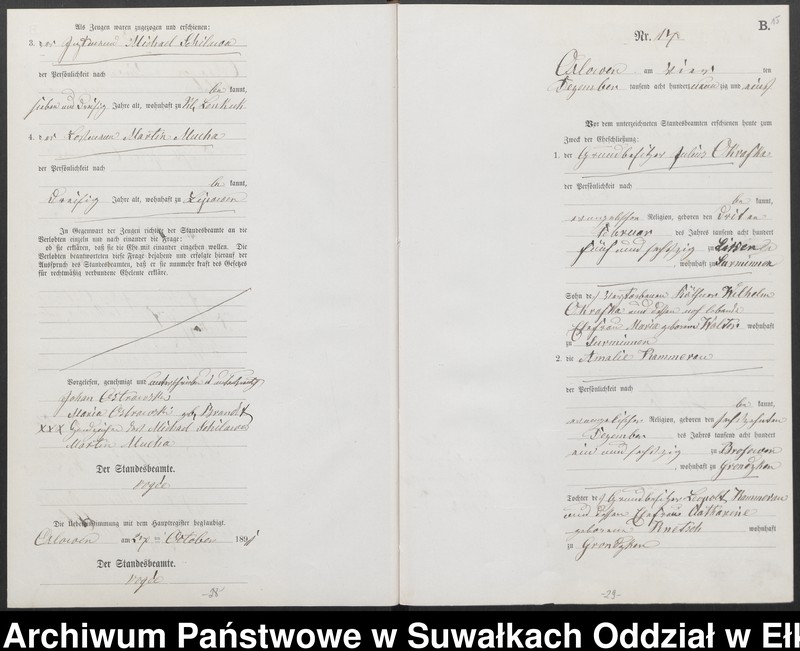 Als Zeugen waren zugezogen und erschienen:
3. der Michael Schilawa
der Persönlichkeit nach
be kannt,
sieben und dreißig Jahre alt, wohnhaft zu Kl.
4. der Losmann Martin Mucha
der Persönlichkeit nach
be kannt,
dreißig Jahre alt, wohnhaft zu
In Gegenwart der Zeugen richtete der Standesbeamte an die
Verlobten einzeln und nach einander die Frage:
ob sie erklären, daß sie die Ehe mit einander eingehen wollen. Die
Verlobten beantworteten diese Frage bejahend und erfolgte hierauf der
Ausspruch des Standesbeamten, daß er sie nunmehr kraft des Gesetzes
für rechtmäßig verbundene Eheleute erkläre.
Vorgelesen, genehmigt und
Johan Ostrowski
Maria Ostrowski geb. Brandt
XXX Handzeichen des Michael Schilawa
Martin Mucha
Der Standesbeamte.
Die Uebereinstimmung mit dem Hauptregister beglaubigt.
Orlowen am October 189
Der Standesbeamte.
-28-
B.
Nr. 17
Orlowen am vier ten
Dezember tausend acht hundert neun zig und
Vor dem unterzeichneten Standesbeamten erschienen heute zum
Zweck der Eheschließung:
1. der Grundbesitzer Julius
der Persönlichkeit nach
be kannt,
evangelischer Religion, geboren den dritten
Februar des Jahres tausend acht hundert
fünf und sechszig zu Lötzen
, wohnhaft zu Surminnen
Sohn des verstorbenen Käthner Wilhelm
und dessen noch lebende
Ehefrau Maria geborene wohnhaft
zu Surminnen
2. die Amalie Kammerau
der Persönlichkeit nach
be kannt,
evangelischer Religion, geboren den sechszehnten
Dezember des Jahres tausend acht hundert
ein und sechszig zu Brosowen
, wohnhaft zu Grondzken
Tochter des Grundbesitzer Leopold Kammerau
und dessen Ehefrau Catharine
geborene wohnhaft
zu Grondzken
-29-
Archiwum Państwowe w Suwałkach Oddział w Ełk